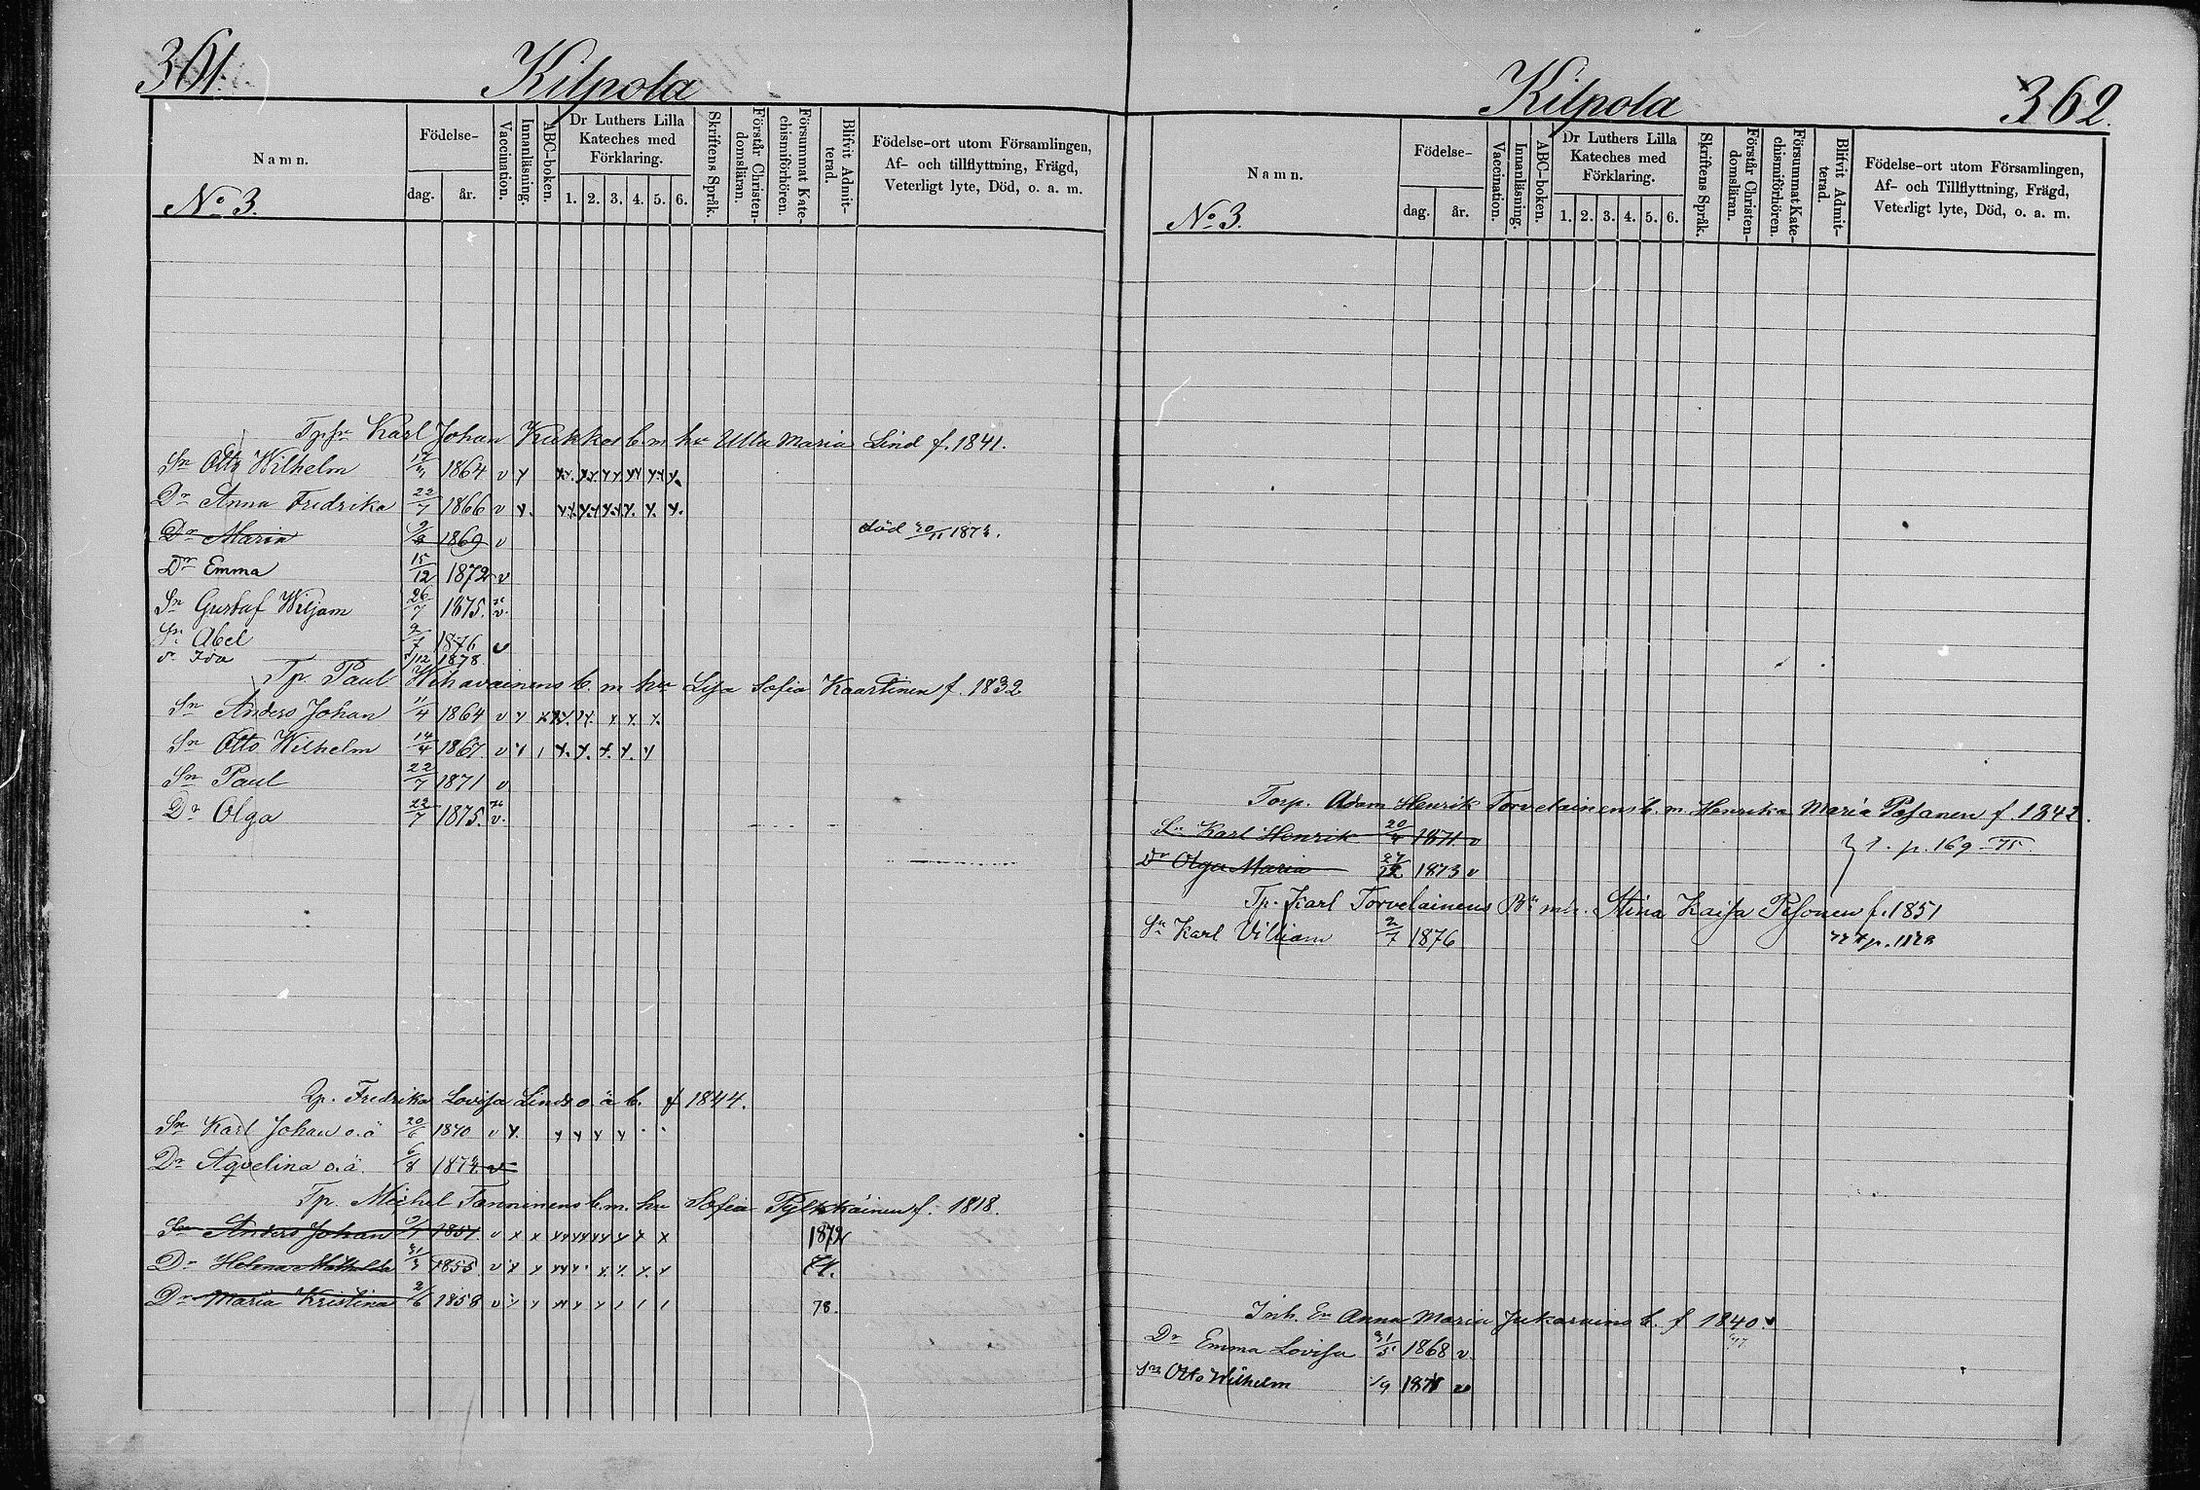 361.
Kilpola
Namn.
Födelse-
dag.
år.
Vaccination.
Innanläsning.
ABC-boken.
Dr Luthers Lilla
Kateches med
Förklaring.
1. 2. 3. 4. 5. 6.
Skriftens Språk.
Förstår Christen-
domsläran.
Försummat Kate-
chismiförhören.
Blifvit Admit-
terad.
Födelse-ort utom Församlingen,
Af- och tillflyttning, Frägd,
Veterligt lyte, Död, o. a. m.
No 3.
Karl Johan Kukkos b. m. hu Ulla Maria Lind f. 1841.
Sn Otto Wilhelm 1864 v
Dr Anna Fredrika 22/7 1866 v
Dr Maria 1869 v död 1873.
Dr Emma 15/12 1872 v
Sn Gustaf Wiljam 26/7 1875. v.
Sn Abel 1876 v
dr Ida /12 1878
Tp. Paul Wihavainens b. m. hu Lisa Sofia Kaartinen f. 1832
Sn Anders Johan /4 1864 v
Sn Otto Wilhelm 14/4 1867. v
Sn Paul 22/7 1871 v
Dr Olga 22/7 1875. v.
Fredrika Lovisa Linds o. ä b. f 1844.
Sn Karl Johan o. ä 20/6 1870 v
Dr Aqvelina o. ä. 6/8 187
Tp. Michel Tanninens b. m. hu Sofia Pylkkäinen f. 1818.
Sn Anders Johan 1851. v 1872
Dr Helena Mathilda 31/3 1855 v
Dr Maria Kristina 2/6 1858 v 78.
Kilpola
362.
Namn.
Födelse-
dag.
år.
Vaccination.
Innanläsning.
ABC-boken.
Dr Luthers Lilla
Kateches med
Förklaring.
1. 2. 3. 4. 5. 6.
Skriftens Språk.
Förstår Christen-
domsläran.
Försummat Kate-
chismiförhören.
Blifvit Admit-
terad.
Födelse-ort utom Församlingen,
Af- och Tillflyttning, Frägd,
Veterligt lyte, Död, o. a. m.
No 3.
Torp. Adam Henrik Torvelainens b. m. Henrika Maria Pesanen f. 1842.
Sn Karl Henrik 20/4 1871. v
p. 169
Dr Olga Maria 27/12 1873 v
Tp. Karl Torvelainens Bn m. Stina Kaisa Pesonen f. 1851
Sn Karl Viliam 2/7 1876
Inh. En Anna Maria Jukarains b. f 1840.
Dr Emma Lovisa 31/5 1868 v.
Sn Otto Wilhelm /9 187 v